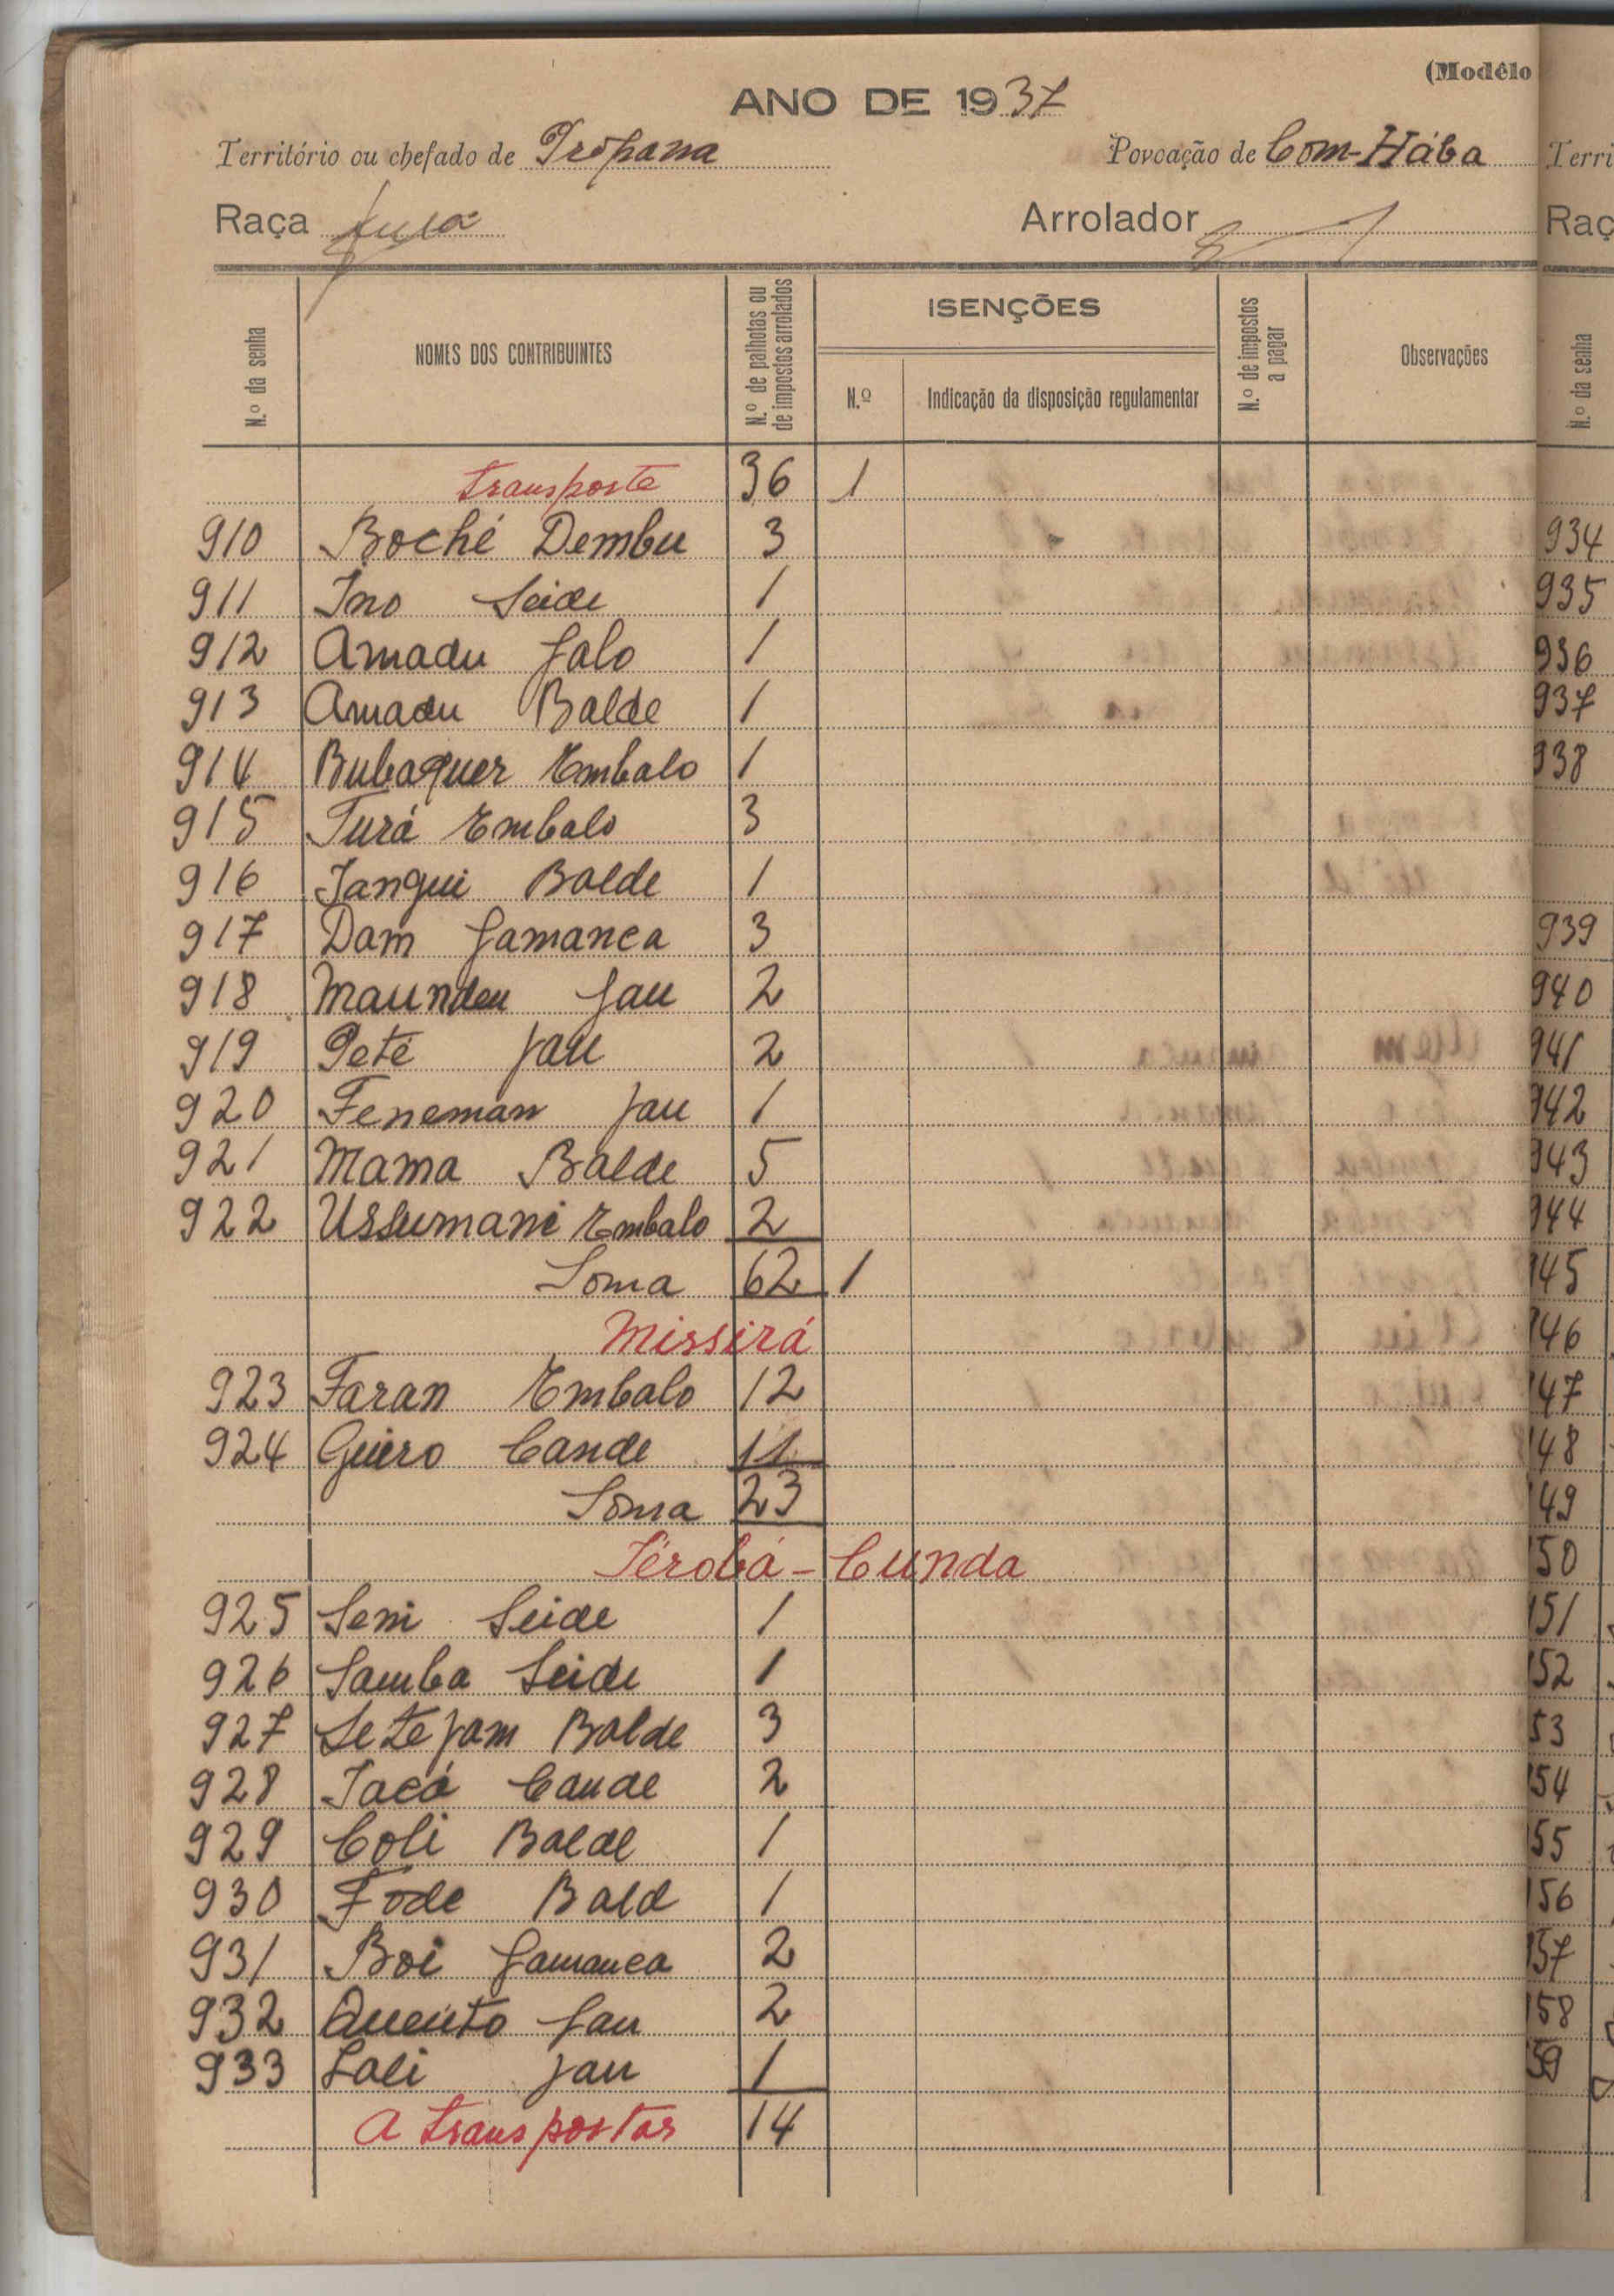 (Modêlo
ANO DE 1937
Território ou chefado de Propana Povoação de Com-Hába
Raça Fula Arrolador
N.º da senha NOMES DOS CONTRIBUINTES N.º de palhotas ou de impostos arrolados ISENÇÕES N.º de impostos a pagar Observações
N.º Indicação da disposição regulamentar
Transporte 36 1
910 Boché Dembu 3
911 Ino Seide 1
912 Amadu Jalo 1
913 Amadu Balde 1
914 Bubaquer Embalo 1
915 Turá Embalo 3
916 Iangui Balde 1
917 Dam Jamanca 3
918 Maundeu Jau 2
919 Peté Jau 2
920 Feneman Jau 1
921 Mama Balde 5
922 Ussumani Embalo 2
Soma 62 1
Missirá
923 Faran Embalo 12
924 Guero Cande 11
Soma 23
Sérobá-Cunda
925 Seni Seide 1
926 Samba Seide 1
927 Setejam Balde 3
928 Iacá Cande 2
929 Coli Balde 1
930 Fode Bald 1
931 Boi Jamanca 2
932 Queúto Jau 2
933 Lali Jau 1
A transportar 14
Terri
Raç
N.º da senha
934
935
936
937
938
939
940
941
942
943
944
945
946
947
948
949
950
951
952
953
954
955
956
957
958
959